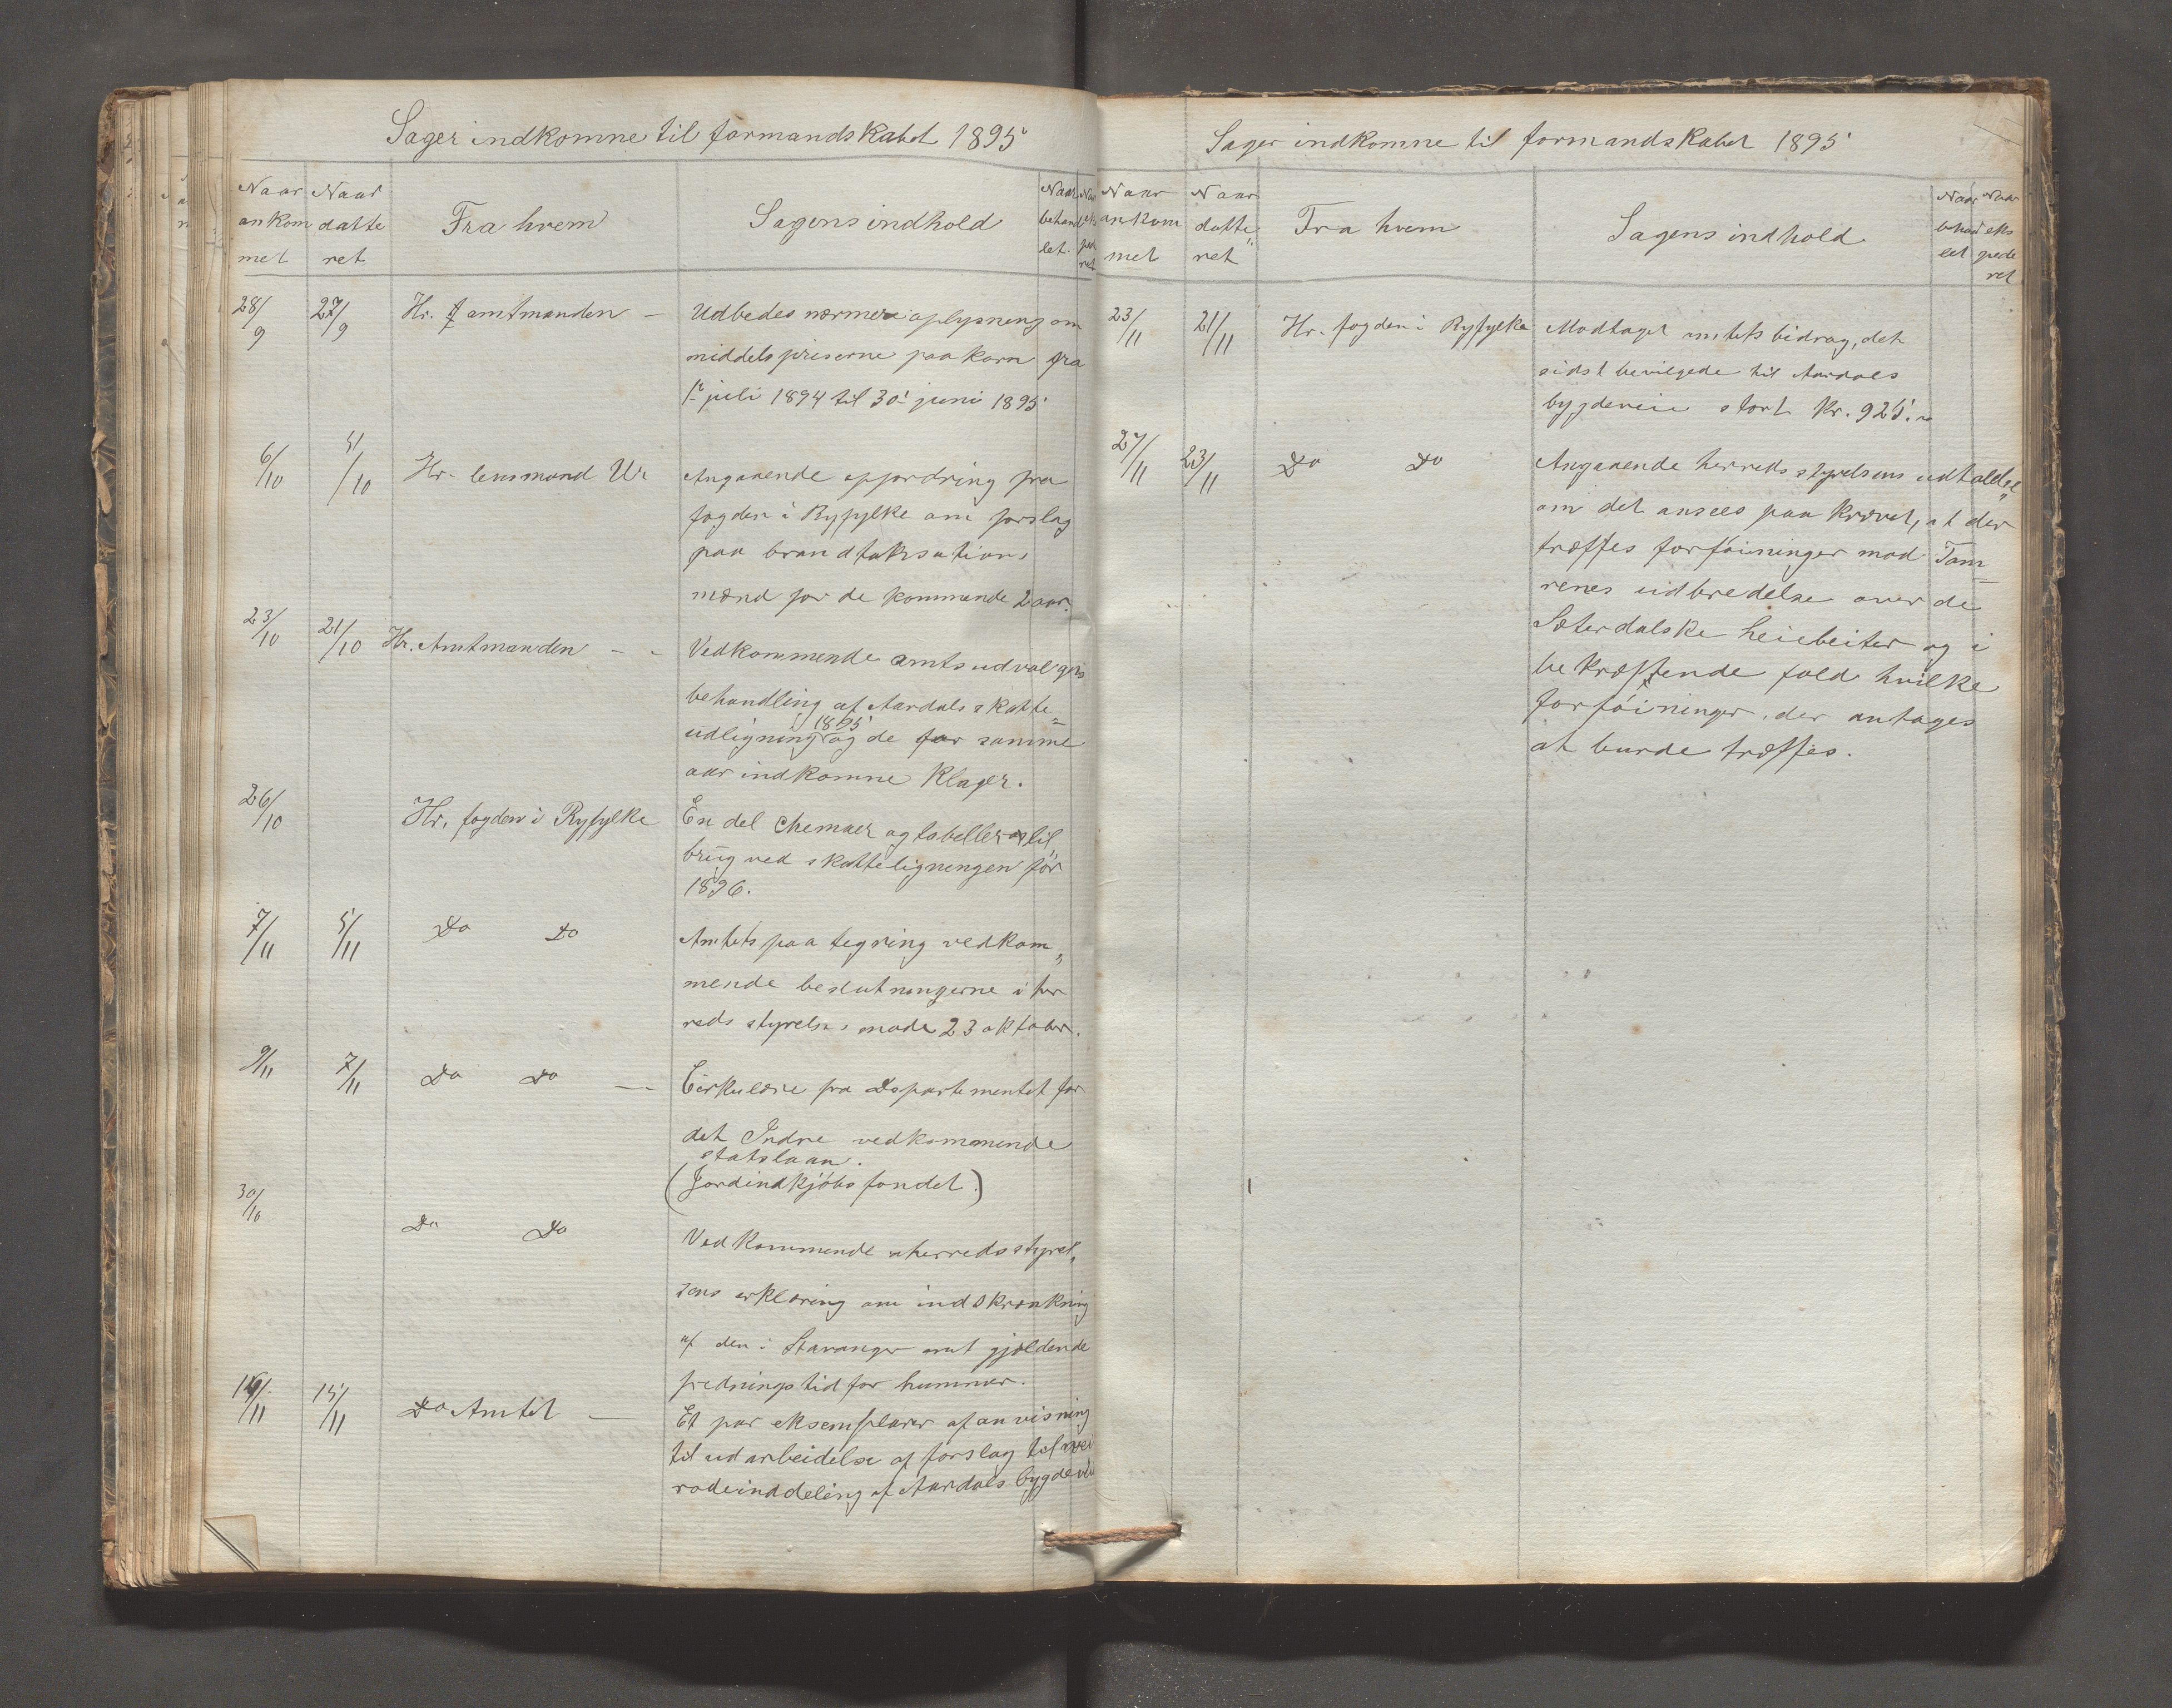 Sager indkomne til formandskabet 1895
Naar ankommet
Naar datteret
Fra hvem
Sagens indhold
Naar behandlet.
28/9
27/9
Hr. amtmanden —
Udbedes nærmere oplysning om
middelspriserne paa korn fra
1ste juli 1894 til 30te juni 1895
6/10
5/10
Hr. lensmand
Angaaende opfordring fra
fogden i Ryfylke om forslag
paa brandtaksations
mænd for de kommende 2 aar.
23/10
21/10
Hr. Amtmanden - -
Vedkommende amtsudvalgets
behandling af Aardals skatte=
udligning 1895 og de for samme
aar indkomne klager.
26/10
Hr. fogden i Ryfylke
En del chemaer og tabeller til
brug ved skatteligningen for
1896.
7/11
5/11
Do Do
Amtets paategning vedkom„
mende beslutningerne i her
reds styrelses møde 23 oktober.
9/11
7/11
Do Do —
Cirkulære fra Departementet for
det Indre vedkommende
statslaan.
(Jordindkjøbsfondet.)
30/10
Do Do
Vedkommende herredsstyrel„
sens erklæring om indskrænkning
af den i Stavanger amt gjældende
fredningstid for hummer.
/11
15/11
Do Amtet —
Et par eksemplarer af anvisning
til udarbeidelse af forslag til
rodeinddeling af Aardals bygdevei
Sager indkomne til formandskabet 1895
Naar ankommet
Naar datte„ret
Fra hvem
Sagens indhold
Naar behandlet
Naar ekspederet
23/11
21/11
Hr. fogden i Ryfylke
Modtaget amtets bidrag, det
sidst bevilgede til Aardals
bygdeveie stort Kr. 925.
27/11
23/11
Do Do
Angaaende herredsstyrelsens udtalelse
om det ansees paa krævet, at der
træffes forføininger mod Tam=
renes udbredelse over de
Sæterdalske heiebeiter og i
bekræftende fald hvilke
forføininger, der antages
at burde træffes.